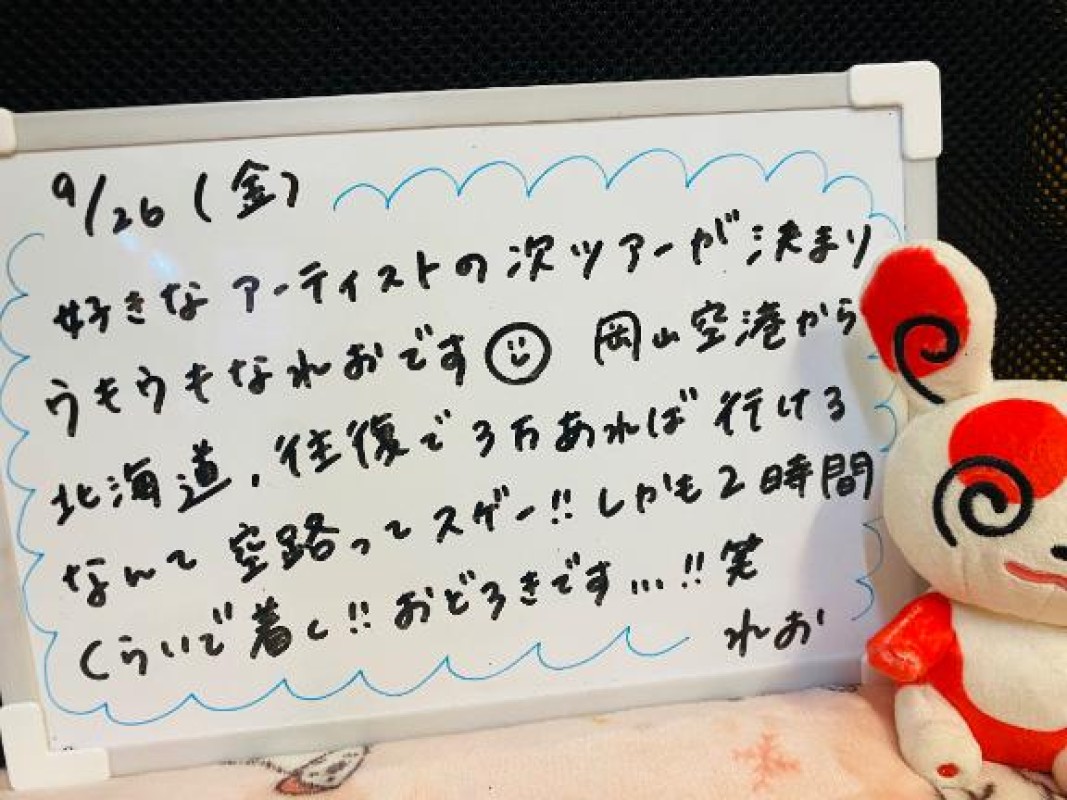 9/26(金)
好きなアーティストの次ツアーが決まり
ウキウキなれおです 岡山空港から
北海道、往復で3万あれば行ける
なんて空路ってスゲー!!しかも2時間
くらいで着く!!おどろきです...!!笑
れお